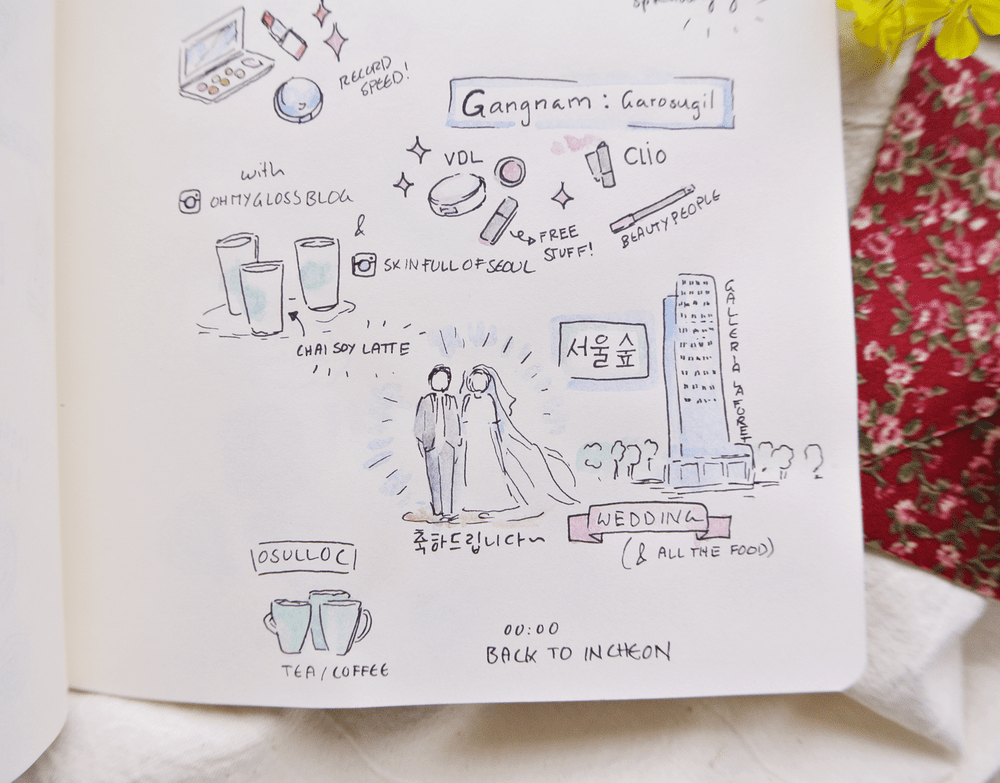 RECORD
SPEED!
Gangnam : Garosugil
with
OHMYGLOSSBLOG
&
SKINFULL OF SEOUL
VDL
FREE
STUFF!
Clio
BEAUTY PEOPLE
CHAI SOY LATTE
서울숲
GALLERIA LA FORET
축하드립니다~
WEDDING
(& ALL THE FOOD)
OSULLOC
TEA / COFFEE
00:00
BACK TO INCHEON